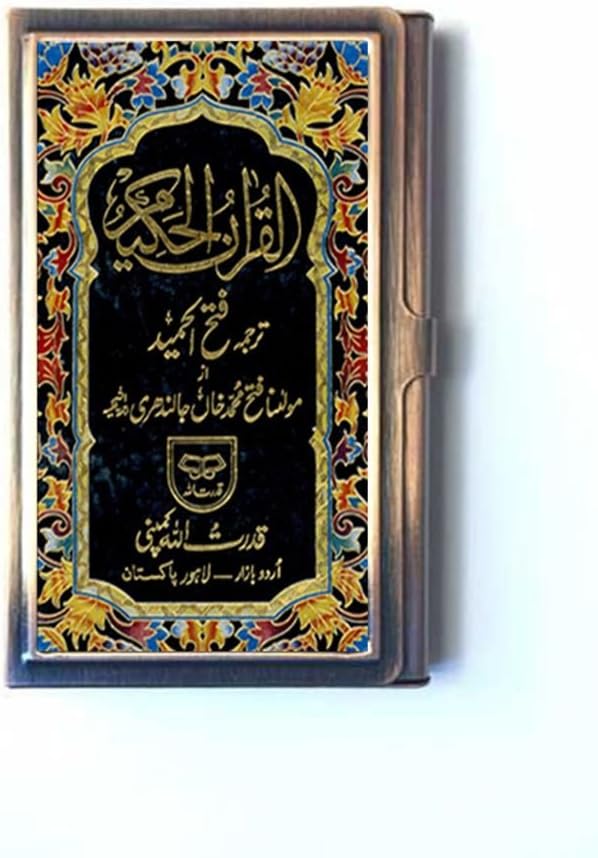 القرآن الحکیم
ترجمہ فتح الحمید
از
مولٰنا فتح محمد خان جالندھری رحمۃ اللہ علیہ
قدرت اللہ
قدرت اللہ کمپنی
اُردو بازار — لاہور پاکستان